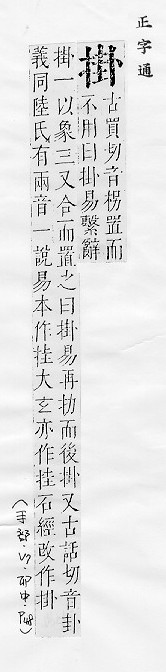 正字通
掛
古買切音枴置而
不用曰掛易繫辭
掛一以象三又合一而置之曰掛易再扐而後掛又古話切音卦
義同陸氏有兩音一說易本作挂大玄亦作挂石經改作掛